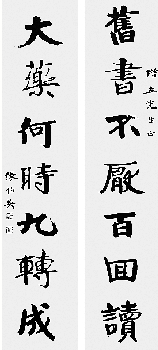 舊書不厭百回讀
大藥何時九轉成